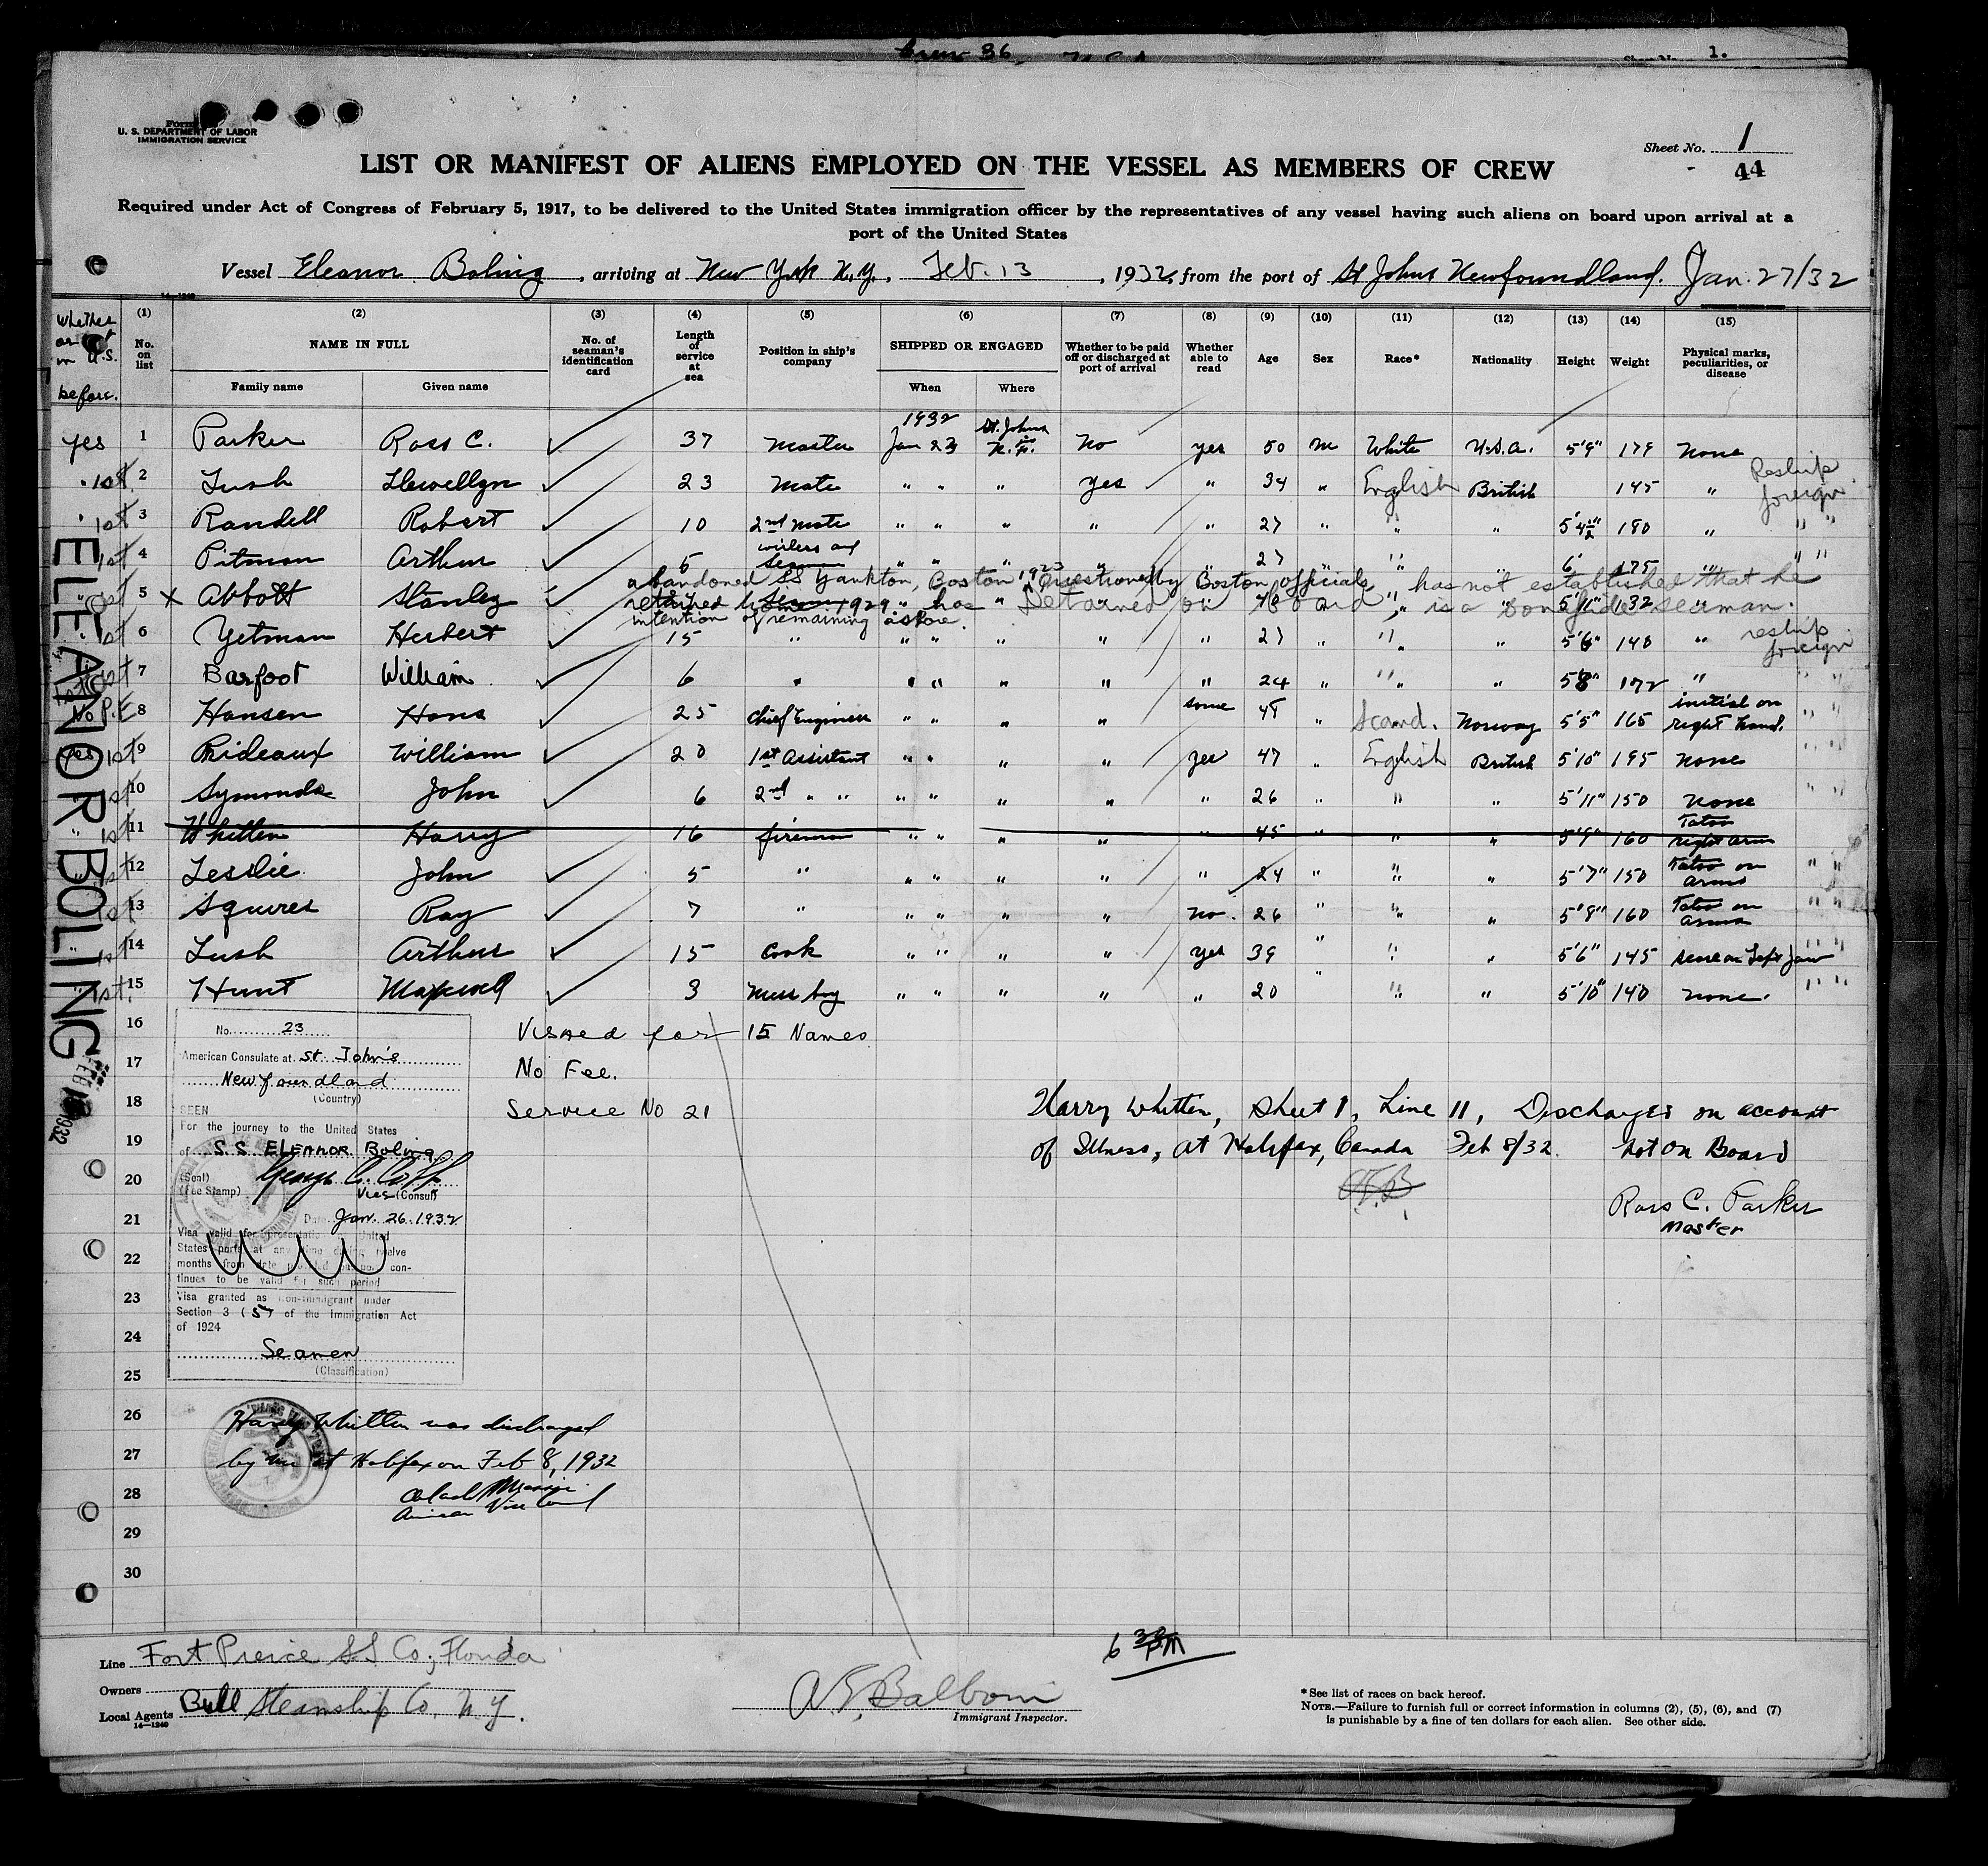 Crew 36
Sheet No. 1.
Form
U. S. DEPARTMENT OF LABOR
IMMIGRATION SERVICE
Sheet No. 1
44
LIST OR MANIFEST OF ALIENS EMPLOYED ON THE VESSEL AS MEMBERS OF CREW
Required under Act of Congress of February 5, 1917, to be delivered to the United States immigration officer by the representatives of any vessel having such aliens on board upon arrival at a
port of the United States
Vessel Eleanor Boling, arriving at New York N.Y., Feb. 13, 1932, from the port of St Johns Newfoundland. Jan. 27/32
whether or not in U.S. before. (1) No. on list (2) NAME IN FULL Family name Given name (3) No. of seaman's identification card (4) Length of service at sea (5) Position in ship's company (6) SHIPPED OR ENGAGED When Where (7) Whether to be paid off or discharged at port of arrival (8) Whether able to read (9) Age (10) Sex (11) Race* (12) Nationality (13) Height (14) Weight (15) Physical marks, peculiarities, or disease
yes 1 Parker Ross C. 37 Master 1932 Jan 23 St. Johns N.F. No yes 50 m White U.S.A. 5'9" 179 None
" 1st 2 Lush Llewellyn 23 Mate " " " Yes " 34 " English British 145 " Reship foreign
" 1st 3 Randell Robert 10 2nd Mate " " " " " 27 " " " 5'4½" 180 " " "
1st 4 Pitman Arthur 6 wireless and Seaman " " " " " 27 " " " 6' 175 " " "
1st 5 x Abbott Stanley Seaman " " " " " " " " 5'11" 132 "
abandoned SS Yankton, Boston 1923 Questioned by Boston officials has not established that he
returned home 1929 has Detained on Board is a bonafide seaman.
intention of remaining ashore.
" 1st 6 Yetman Herbert 15 " " " " " " 27 " " " 5'6" 140 " reship foreign
1st 7 Barfoot William 6 " " " " " " 24 " " " 5'8" 172 " " "
No P.E 8 Hansen Hans 25 Chief Engineer " " " " some 48 " Scand. Norway 5'5" 165 initial on right hand. " "
yes 1st 9 Rideaux William 20 1st Assistant " " " " yes 47 " English British 5'10" 195 none " "
" 1st 10 Symonds John 6 2nd " " " " " " " 26 " " " 5'11" 150 none " "
" 1st 11 Whitten Harry 16 fireman " " " " " 45 " " " 5'9" 160 Tatoo right arm
" 1st 12 Lesslie John 5 " " " " " " 24 " " " 5'7" 150 Tatoo on arms " "
1st 13 Squires Ray 7 " " " " " no. 26 " " " 5'8" 160 Tatoo on arms " "
" 1st 14 Lush Arthur 15 Cook " " " " yes 39 " " " 5'6" 145 Left Jaw " "
" 1st. 15 Hunt Maxwell 3 Mess boy " " " " " 20 " " " 5'10" 140 none. " "
16
17
18
19
20
21
22
23
24
25
26
27
28
29
30
ELEANOR BOLING
1932
No. 23
American Consulate at St. John's
Newfoundland
(Country)
SEEN
For the journey to the United States
of S.S. ELEANOR Boling
(Seal)
(Fee Stamp)
Vice (Consul)
Date Jan. 26. 1932
Visa valid for presentation United
States ports at any time during twelve
months from date provided con-
tinues to be valid for such period
Visa granted as non-immigrant under
Section 3 (5) of the Immigration Act
of 1924
Seamen
(Classification)
Visaed for 15 Names
No Fee.
Service No 21
Harry Whitten, Sheet 1, Line 11, Discharged on account
of Illness, at Halifax, Canada Feb 8/32. Not on Board
Ross C. Parker
Master
Harry Whitten was discharged
by me at Halifax on Feb 8, 1932
American Vice Consul
Line Fort Pierce SS Co., Florida
Owners
Local Agents Bull Steamship Co, N.Y.
14—1240
6 30 PM
A E Balboni
Immigrant Inspector.
*See list of races on back hereof.
NOTE.—Failure to furnish full or correct information in columns (2), (5), (6), and (7)
is punishable by a fine of ten dollars for each alien. See other side.